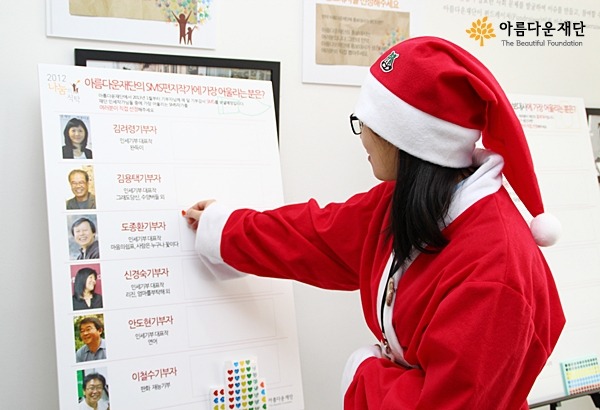 아름다운재단
The Beautiful Foundation
2012
나눔
아름다운재단의 SMS편지작가에 가장 어울리는 분은?
김려령기부자
인세기부 대표작
완득이
김용택기부자
인세기부 대표작
그래도 당신, 수양버들 외
도종환기부자
인세기부 대표작
마음의쉼표, 사람은 누구나 꽃이다
신경숙기부자
인세기부 대표작
리진, 엄마를부탁해 외
안도현기부자
인세기부 대표작
연어
이철수기부자
판화 재능기부
아름다운재단